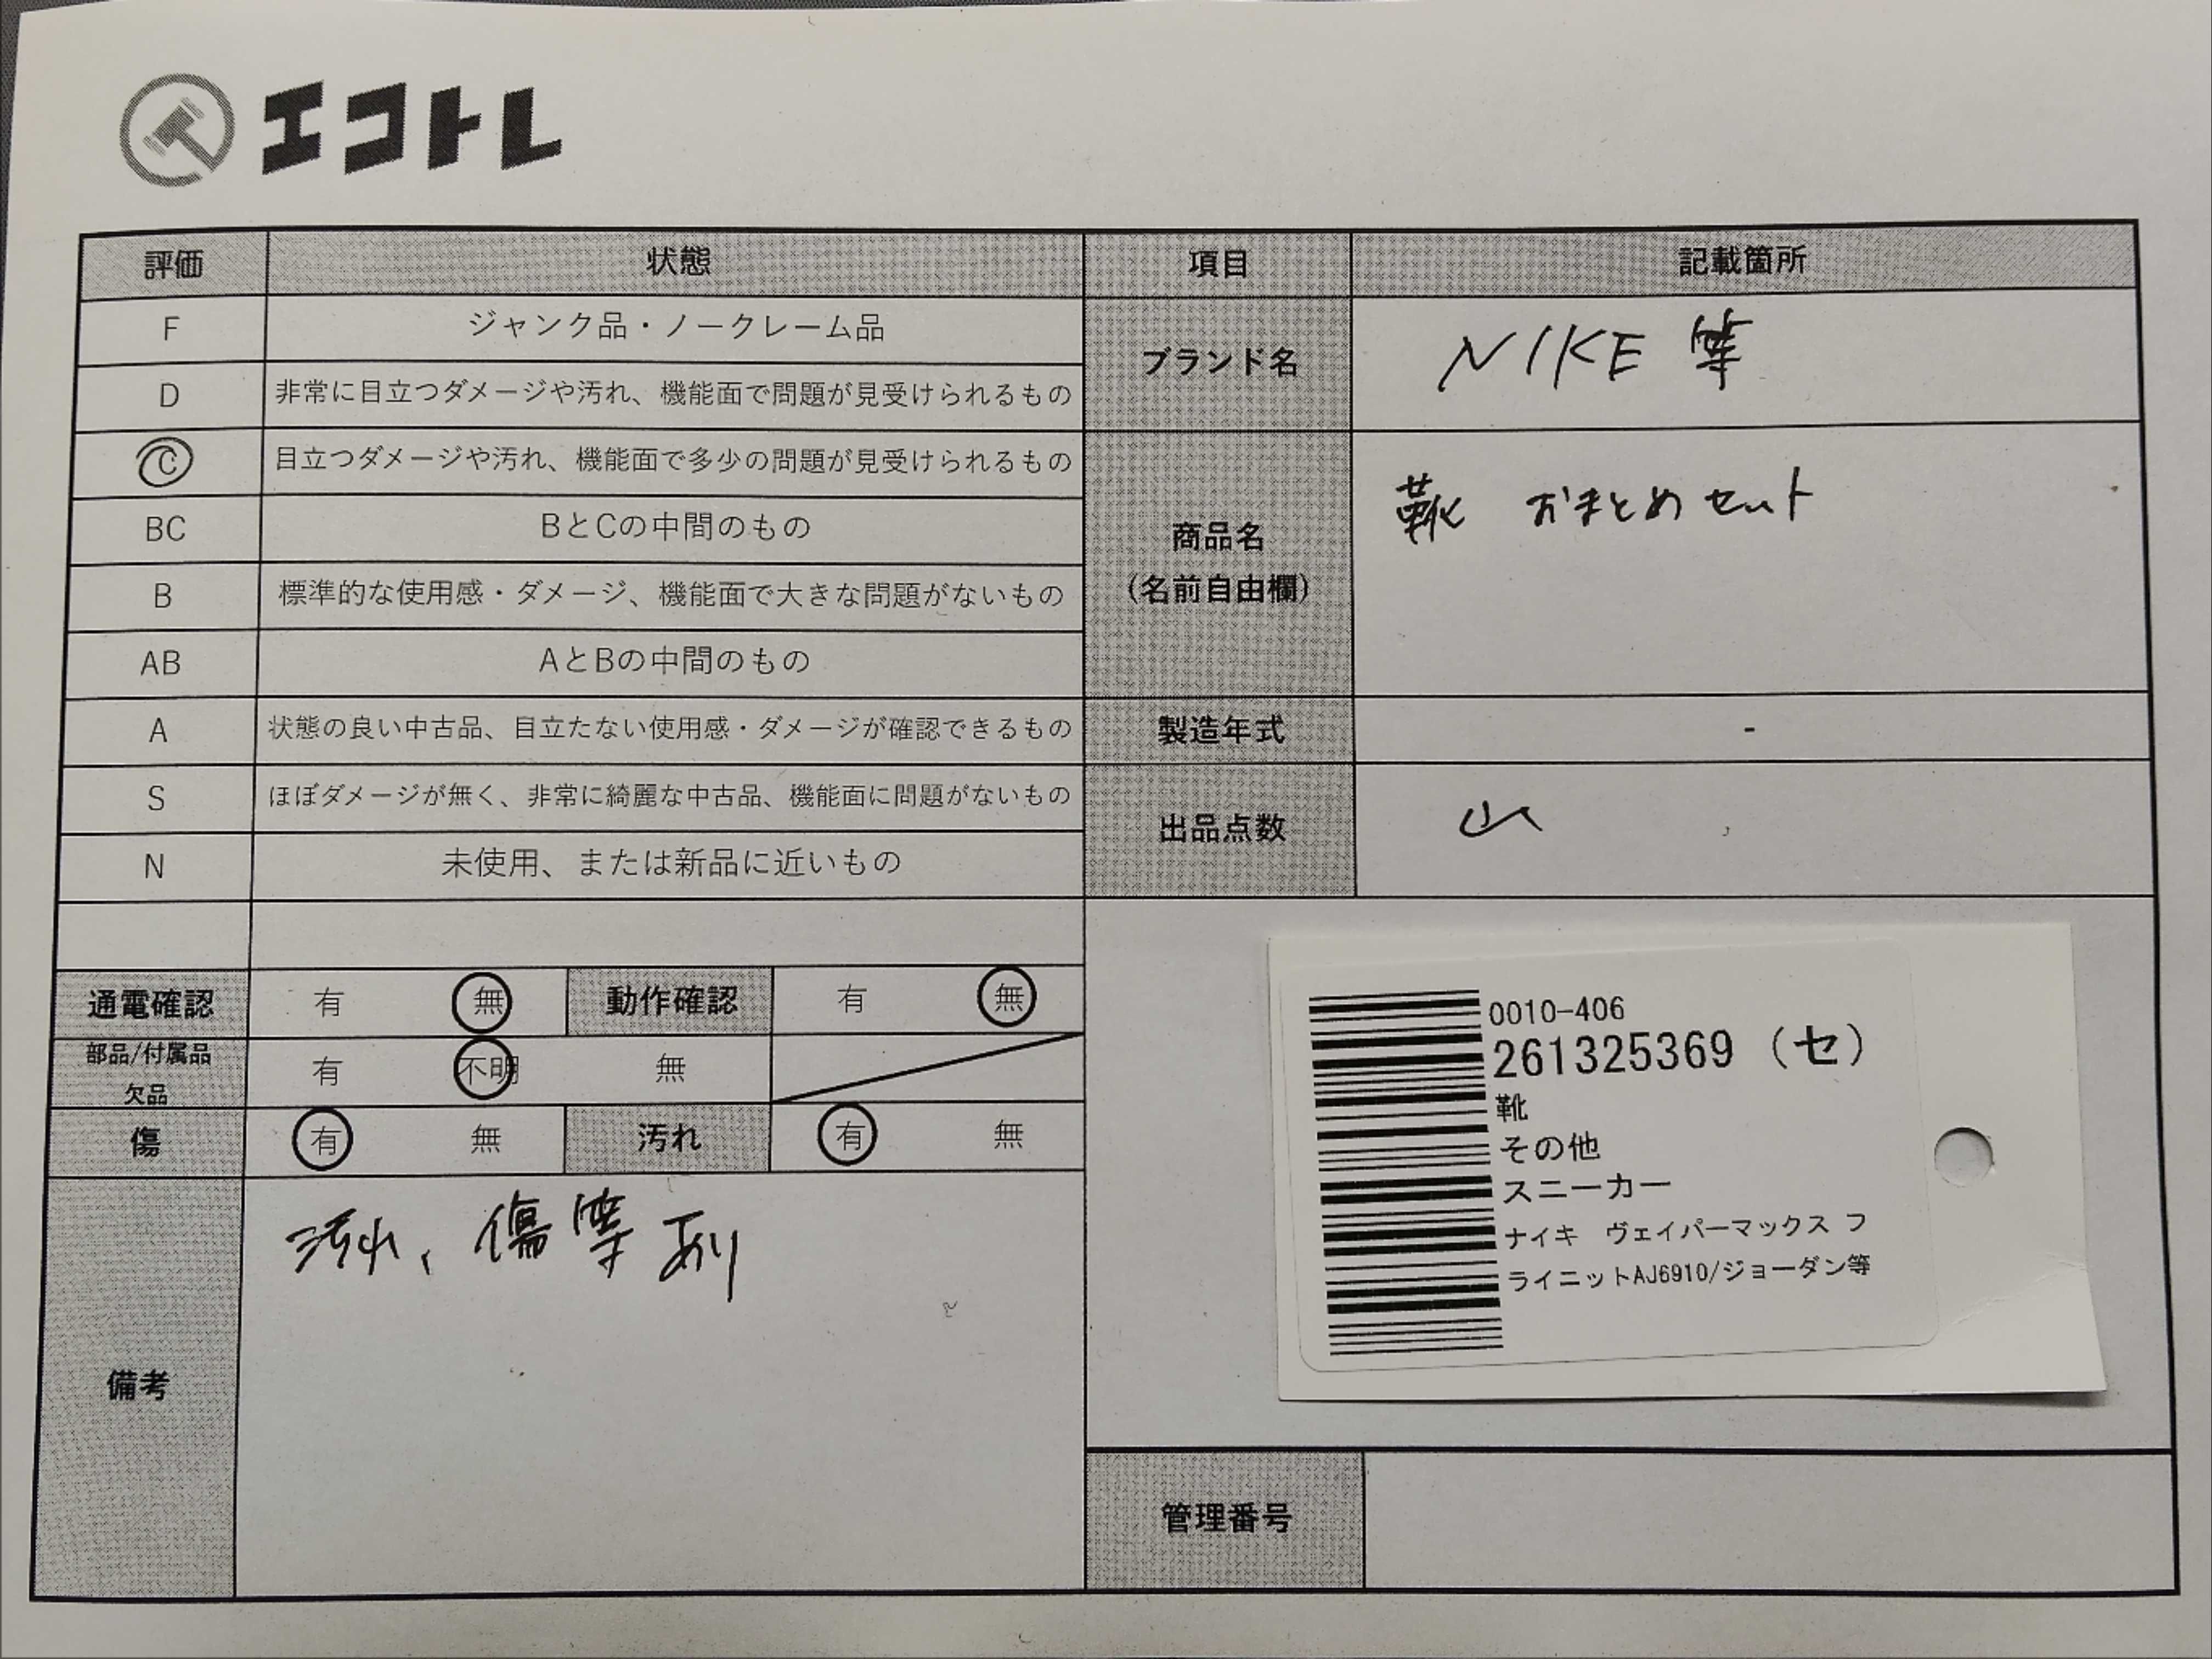 エコトレ
評価 状態 項目 記載箇所
F ジャンク品・ノークレーム品
D 非常に目立つダメージや汚れ、機能面で問題が見受けられるもの
C 目立つダメージや汚れ、機能面で多少の問題が見受けられるもの
BC BとCの中間のもの
B 標準的な使用感・ダメージ、機能面で大きな問題がないもの
AB AとBの中間のもの
A 状態の良い中古品、目立たない使用感・ダメージが確認できるもの
S ほぼダメージが無く、非常に綺麗な中古品、機能面に問題がないもの
N 未使用、または新品に近いもの
ブランド名 NIKE 等
商品名 靴 おまとめセット
(名前自由欄)
製造年式 -
出品点数 山
通電確認 有 無 動作確認 有 無
部品/付属品
欠品 有 不明 無
傷 有 無 汚れ 有 無
備考 汚れ、傷等あり
0010-406
261325369 (セ)
靴
その他
スニーカー
ナイキ ヴェイパーマックス フ
ライニットAJ6910/ジョーダン等
管理番号